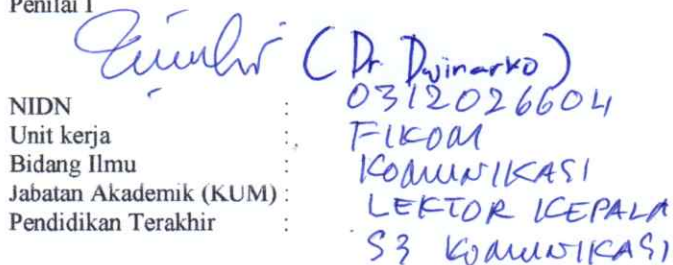 Penilai I
(Dr. Dwinarko)
NIDN : 0312026604
Unit kerja : FIKOM
Bidang Ilmu : KOMUNIKASI
Jabatan Akademik (KUM) : LEKTOR KEPALA
Pendidikan Terakhir : S3 KOMUNIKASI